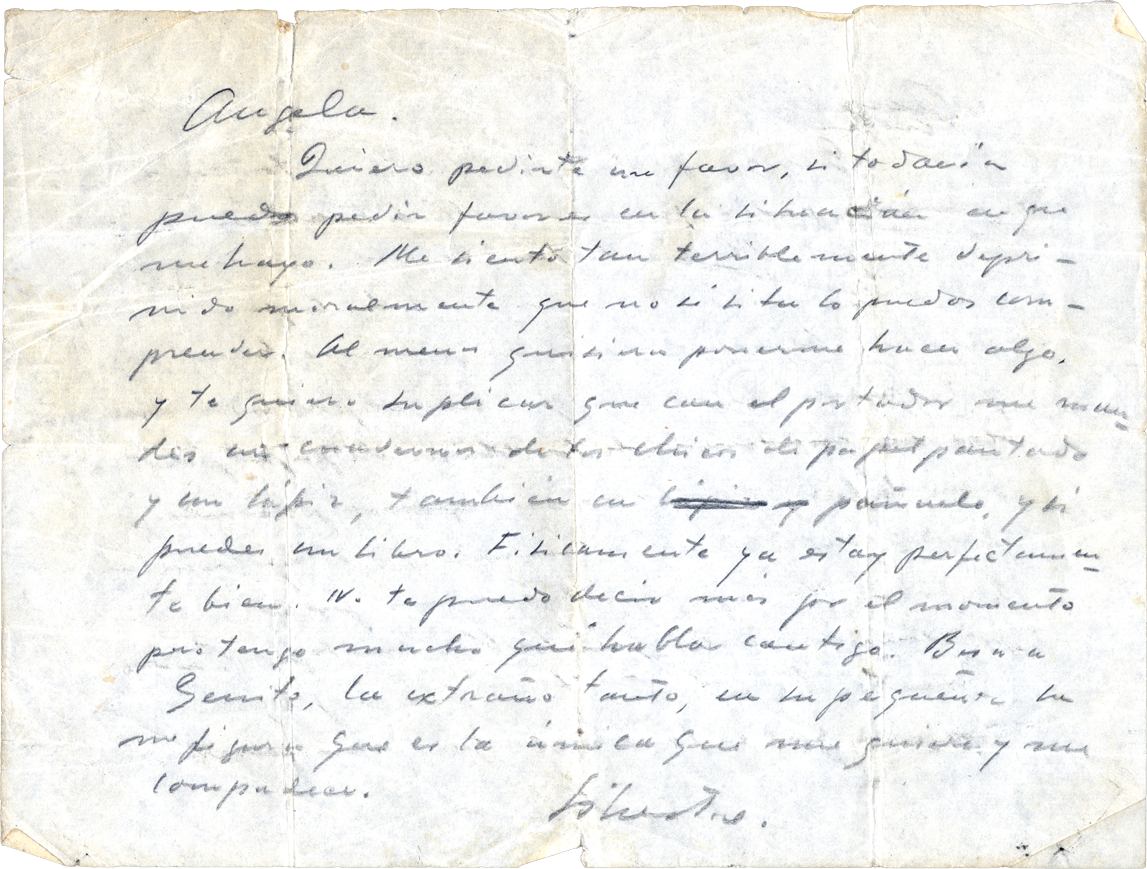 Angela.
Quiero pedirte un favor, si todavía
puedo pedir favores en la situación en que
me hayo. Me siento tan terriblemente depri-
mido moralmente que no sé si tu lo puedes com-
prender. Al menos quisiera ponerme hacer algo,
y te quiero suplicar que con el portador me man-
des un cuaderno de los chicos de papel pautado
y un lápiz, también un lápiz y pañuelo, y si
puedes un libro. Fisicamente ya estoy perfectamen-
te bien. No te puedo decir más por el momento
pero tengo mucho que hablar contigo. Besa a
la extraño tanto, en su pequeñez se
me figura que es la única que me quiere y me
compadece.
Silvestre.